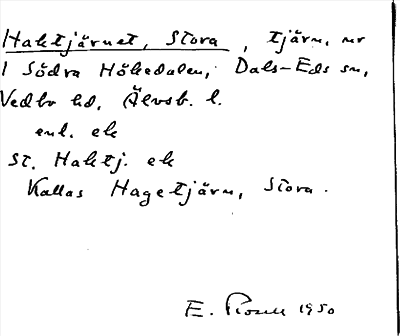 Haktjärnet, Stora, tjärn, nr
1 Södra Hökedalen, Dals-Eds sn,
Vedbo hd, Älvsb. l.
enl. ek
St. Haktj. ek
Kallas Hagetjärn, Stora.
E. 1950